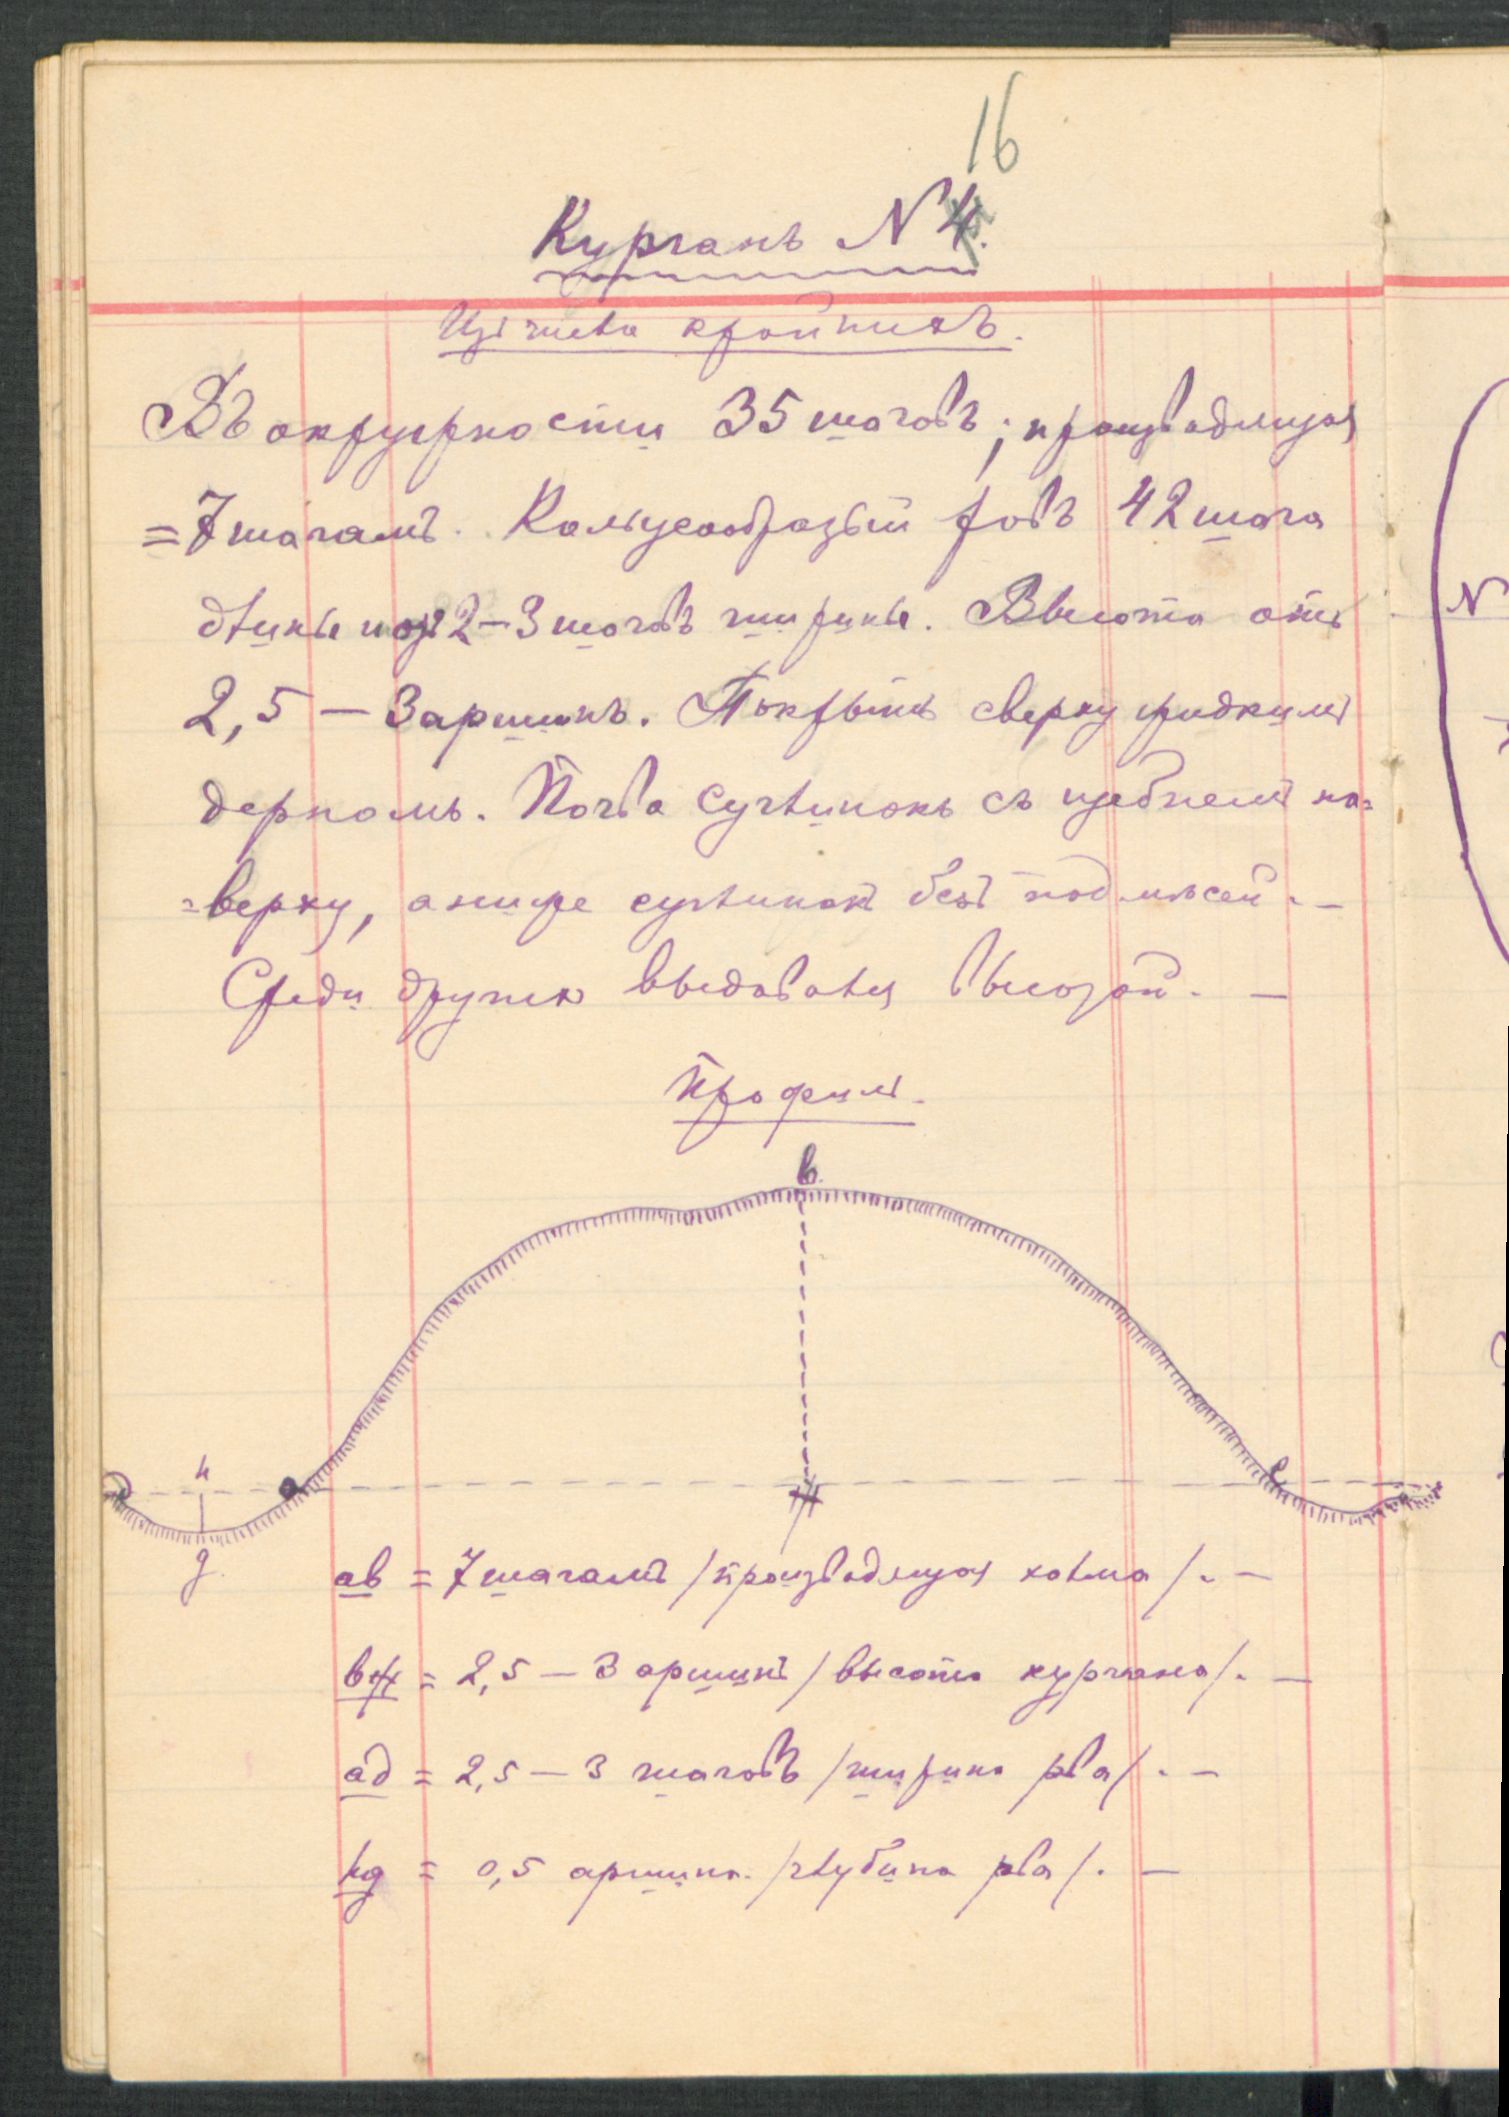 16
Курганъ N 4.
Изъ числа крайнихъ.
Въ окружности 35 шаговъ; производящая
= 7 шагамъ. Кольцеобразный ровъ 42 шага
длины и 2-3 шаговъ ширины. Высота отъ
2,5 — 3 аршинъ. Покрытъ сверху редкимъ
дерномъ. Почва суглинокъ съ щебнемъ на=
=верху, а ниже суглинокъ безъ подмесей. —
Среди другихъ выдавался высотой. —
Профиль.
в.
h
a
c
g
N
ав = 7 шагамъ /производящая холма/. —
вж = 2,5 — 3 аршинъ /высота кургана/. —
ад = 2,5 — 3 шаговъ /ширина рва/. —
hg = 0,5 аршина. /глубина рва/. —